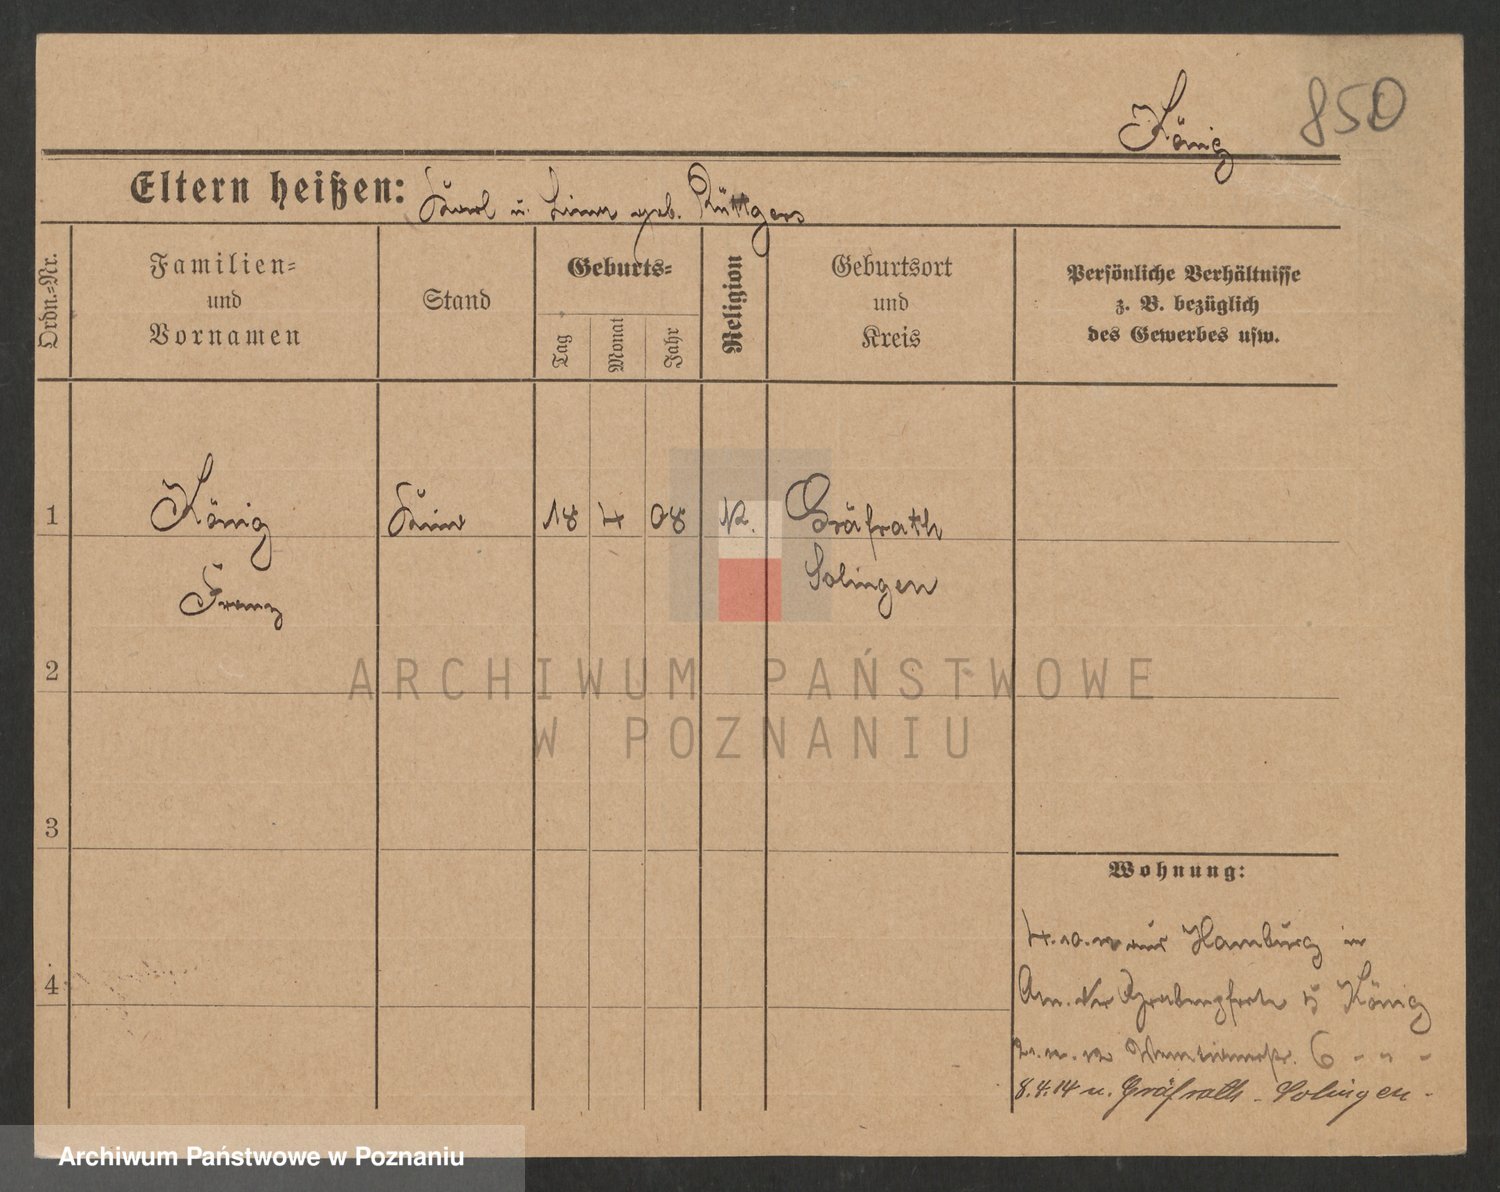 850
König
Eltern heißen: Karl u. geb. Rüttgers
Ordn.-Nr.
Familien-
und
Vornamen
Stand
Geburts-
Tag
Monat
Jahr
Religion
Geburtsort
und
Kreis
Persönliche Verhältnisse
z. B. bezüglich
des Gewerbes usw.
1
König
18
4
08
Gräfrath
Franz
Solingen
2
ARCHIWUM PAŃSTWOWE
W POZNANIU
3
4
Wohnung:
Hamburg
5 König
6 - " -
8.4.14 n. Gräfrath - Solingen -
Archiwum Państwowe w Poznaniu